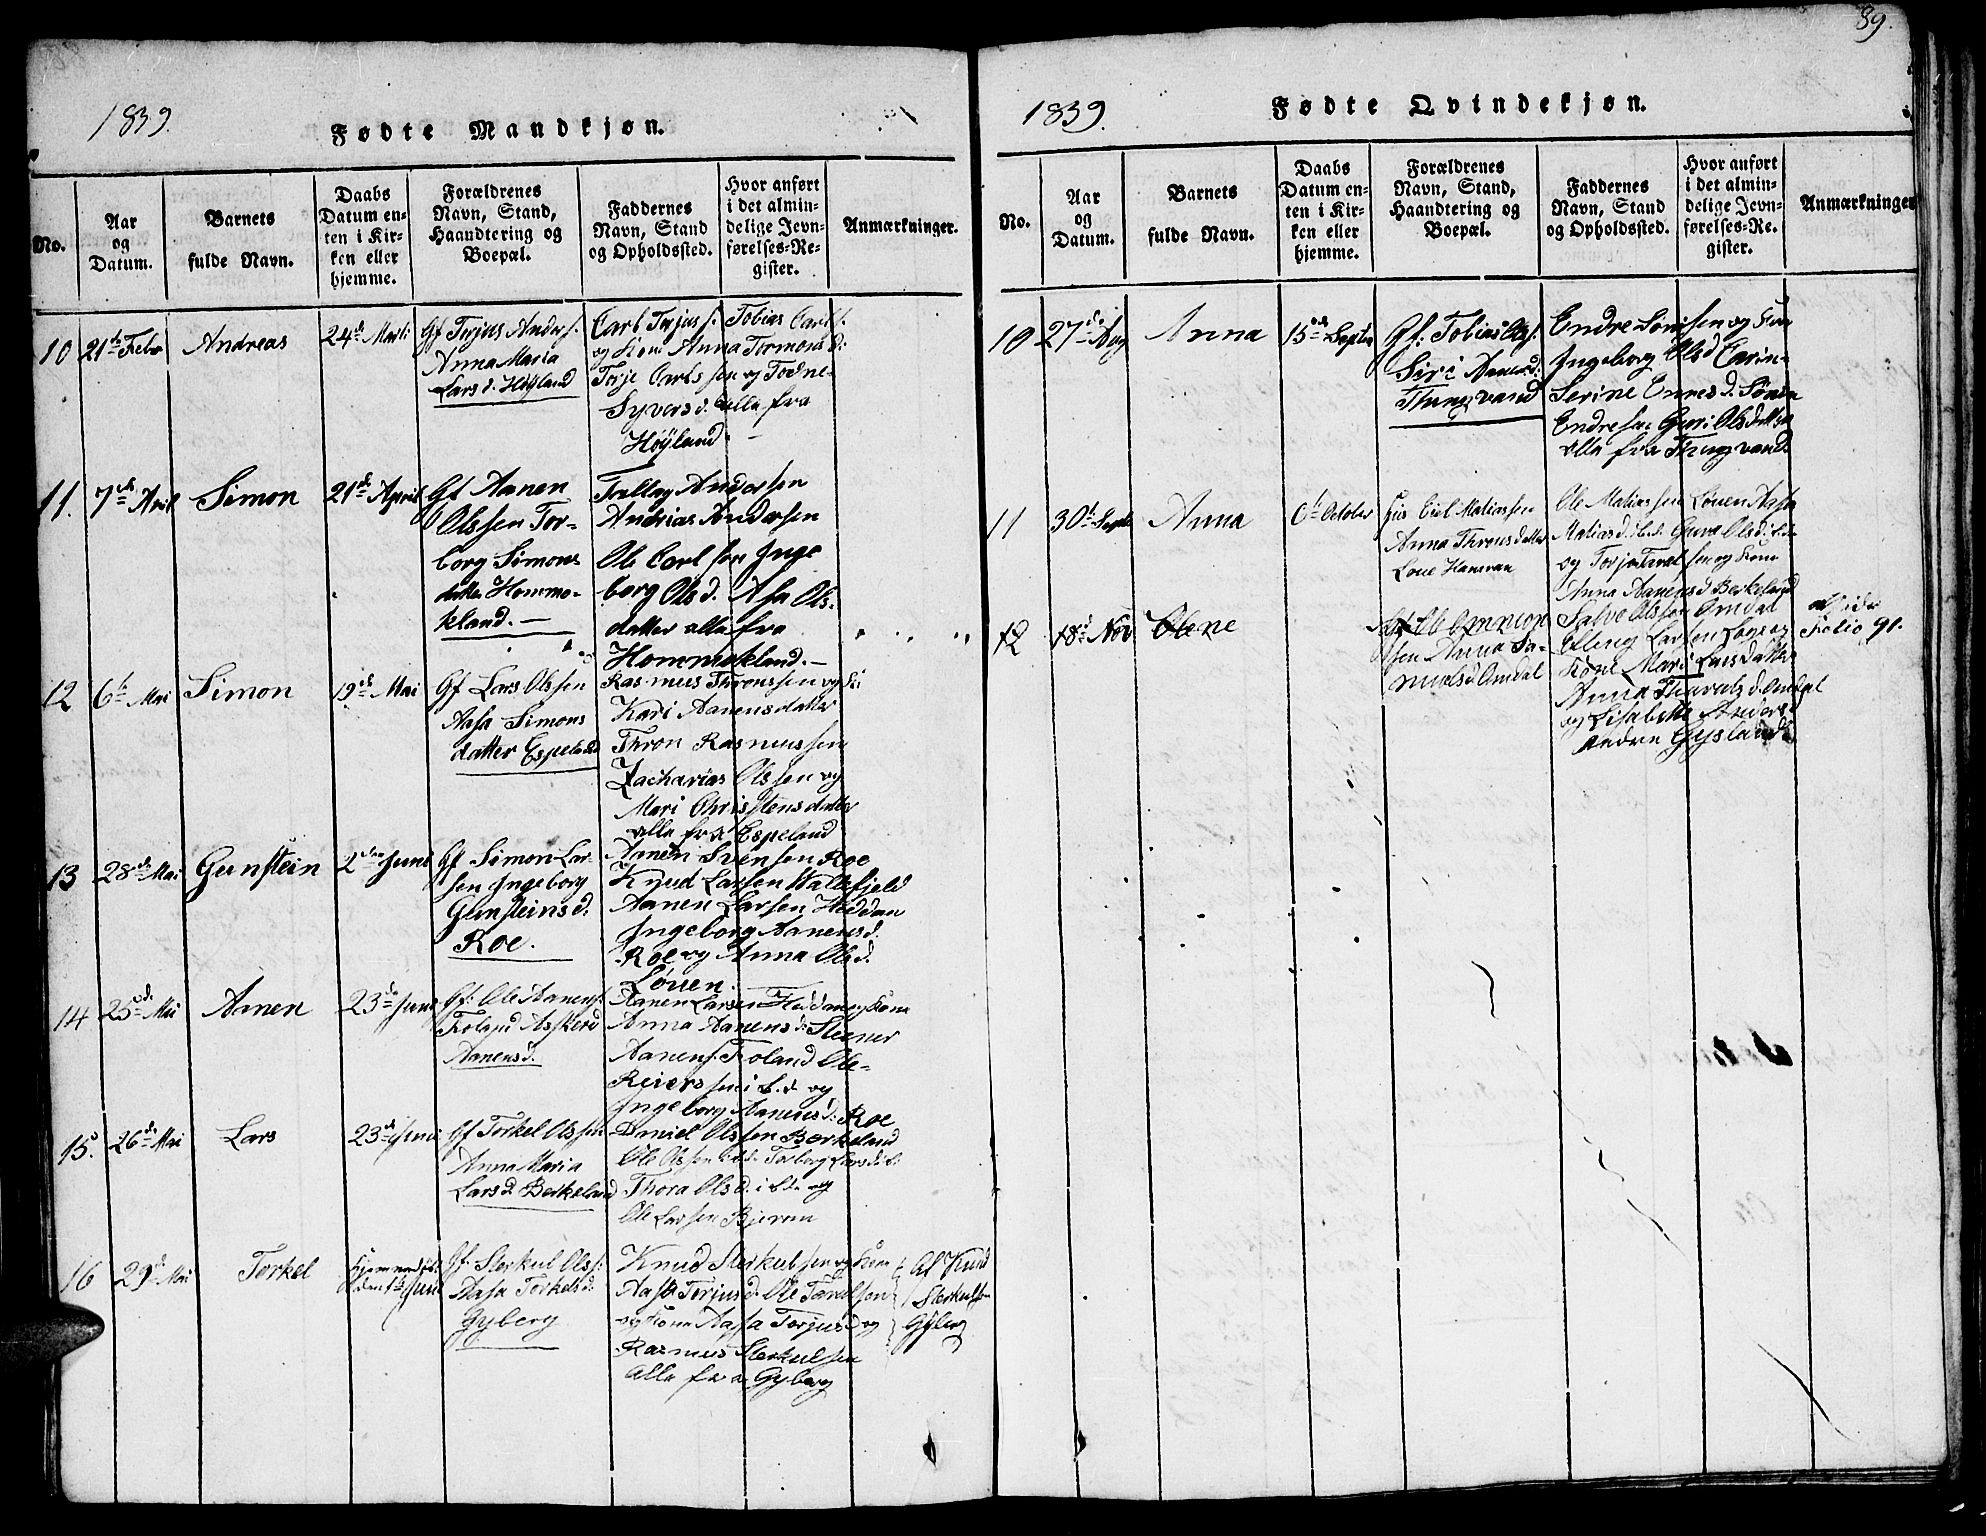 89.
1839.
Fødte Mandkjøn.
No.
Aar
og
Datum.
Barnets
fulde Navn.
Daabs
Datum en-
ten i Kir-
ken eller
hjemme.
Forældrenes
Navn, Stand,
Haandtering og
Boepæl.
Faddernes
Navn, Stand
og Opholdssted.
Hvor anført
i det almin-
delige Jevn-
førelses-Re-
gister.
Anmærkninger.
10
21de Febr
Andreas
24de Marti
Gf Terjus Anders.
Anna Maria
Lars d. Høyland
Carl Terjus s. Tobias Carls.
og Kone Anna Tormons d:
Terje Carlssen og Todne
Syvers d. alle fra
Høyland.
11.
7de April
Simon
21de April
Gf Aanen
Olssen Tor-
borg Simons
datter Hommo-
kland. —
Trellag Anderssen
Andrias Anderssen
Ole Carlssen Inge
borg Ols d. Asa Ols-
datter alle fra
Hommokland. —
12
6te Mai
Simon
19de Mai
Gf Lars Olssen
Aasa Simons
datter Espeland
Rasmus Thronssen og K:
Kari Aanensdatter
Thron Rasmussen
Zacharias Olssen og
Mari Christensdatter
alle fra Espeland
13
28de Mai
Gunstein
2den Juni
Gf Simon Lar-
sen Ingeborg
Gunsteins d.
Roe.
Aanen Svensen Roe
Knud Larsen Hallefjeld
Aanen Larsen Heddan
Ingeborg Aanens d.
Roe og Anna Ols d.
Løuen.
14
25de Mai
Aanen
23de Juni
Gf: Ole Aanens.
Troland Asskerd
Aanens d.
Aanen Larsen Heddan og Kone
Anna Aanens d: Steener
Aanens. Troland Ole
Reierssen i b. d og
Ingeborg Aanens d: Roe
15.
26de Mai
Lars
23de Juni
Gf Torkel Olssen
Anna Maria
Lars d. Berkeland
Daniel Olssen Berkeland
Ole Olssen ibde Torborg Lars d i b:
Thora Ols d. i bde og
Ole Larssen Bjerum
16
29de Mai
Torkel
Gf. Sterkul Olss:
Aasa Torkels d:
Gyberg
Knud Sterkulssen og Kone
Aasa Terjus d. Ole Tarulssen
og Kone Aasa Torjus d og
Rasmus Sterkulssen
alle fra Gyberg
Af Knud
Sterkulss.
Gyberg
1839.
Fødte Qvindekjøn.
No.
Aar
og
Datum.
Barnets
fulde Navn.
Daabs
Datum en-
ten i Kir-
ken eller
hjemme.
Forældrenes
Navn, Stand,
Haandtering og
Boepæl.
Faddernes
Navn, Stand
og Opholdssted.
Hvor anført
i det almin-
delige Jevn-
førelses-Re-
gister.
Anmærkninger
10
27de Aug
Anna
15de Septer
Gf: Tobias Olss:
Siri Aanens d:
Thingvand
Endre Sønssen og Kone
Ingeborg Ols d Carin
Serine Ennes d. Sønen
Endressen Guri Olsdatter
alle fra Thingvand
11
30te Septe
Anna
6te October
Hus Eiel Matiassen
Anna Thronsdatter
Loue Hamran
Ole Matiassen Løuen Aasa
Matias d. ibd. Guro Ols d i bde
og Torje Taralssen og Kone
Anna Aanens d Berkeland
12
18de Nov
Olene
Gf Ole Omnion
sen Anna Sa-
muels d. Omdal
Salve Olssen Omdal
Elling Larssen Lage og
Kone Mari Larsdatter
Anna Tharals d. Omdal
og Lisabette Anders
Andrea Gysland
Folio 91.